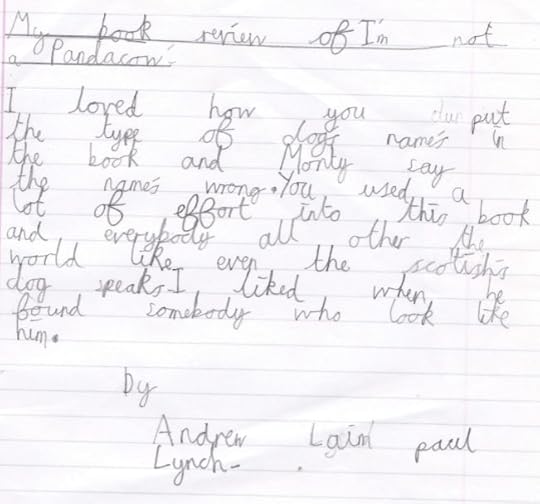 My book review of I'm not
a Pandacow.
I loved how you put
the type of dogs name's in
the book and Monty say
the name's wrong. You used a
lot of effort into this book
and everybody all other the
world like even the scotish's
dog speaks I liked when he
found somebody who look like
him.
by
Andrew Laim paul
Lynch-